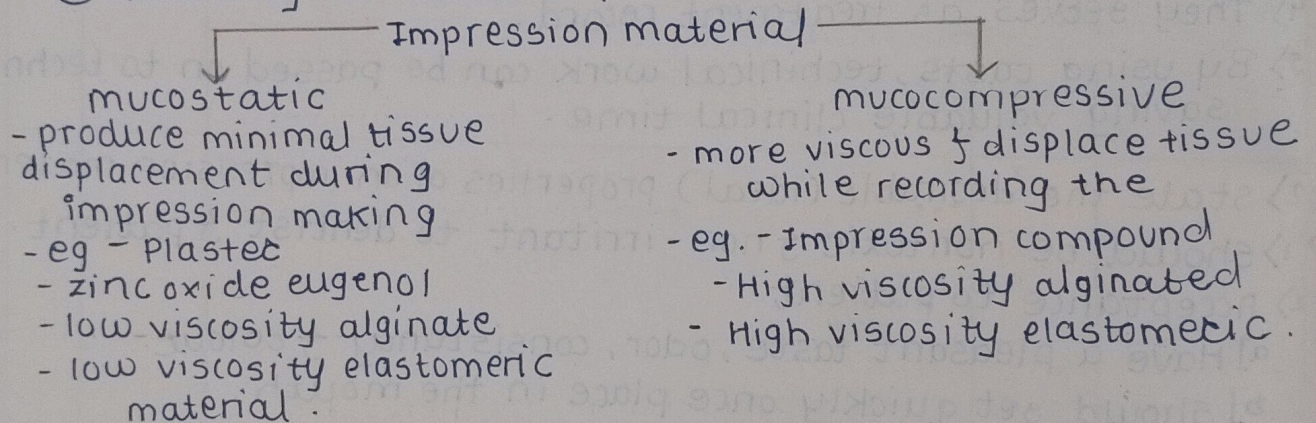 Impression material
mucostatic
- produce minimal tissue
displacement during
impression making
- eg - Plaster
- zinc oxide eugenol
- low viscosity alginate
- low viscosity elastomeric
material.
mucocompressive
- more viscous & displace tissue
while recording the
- eg. - Impression compound
- High viscosity alginated
- High viscosity elastomeric.